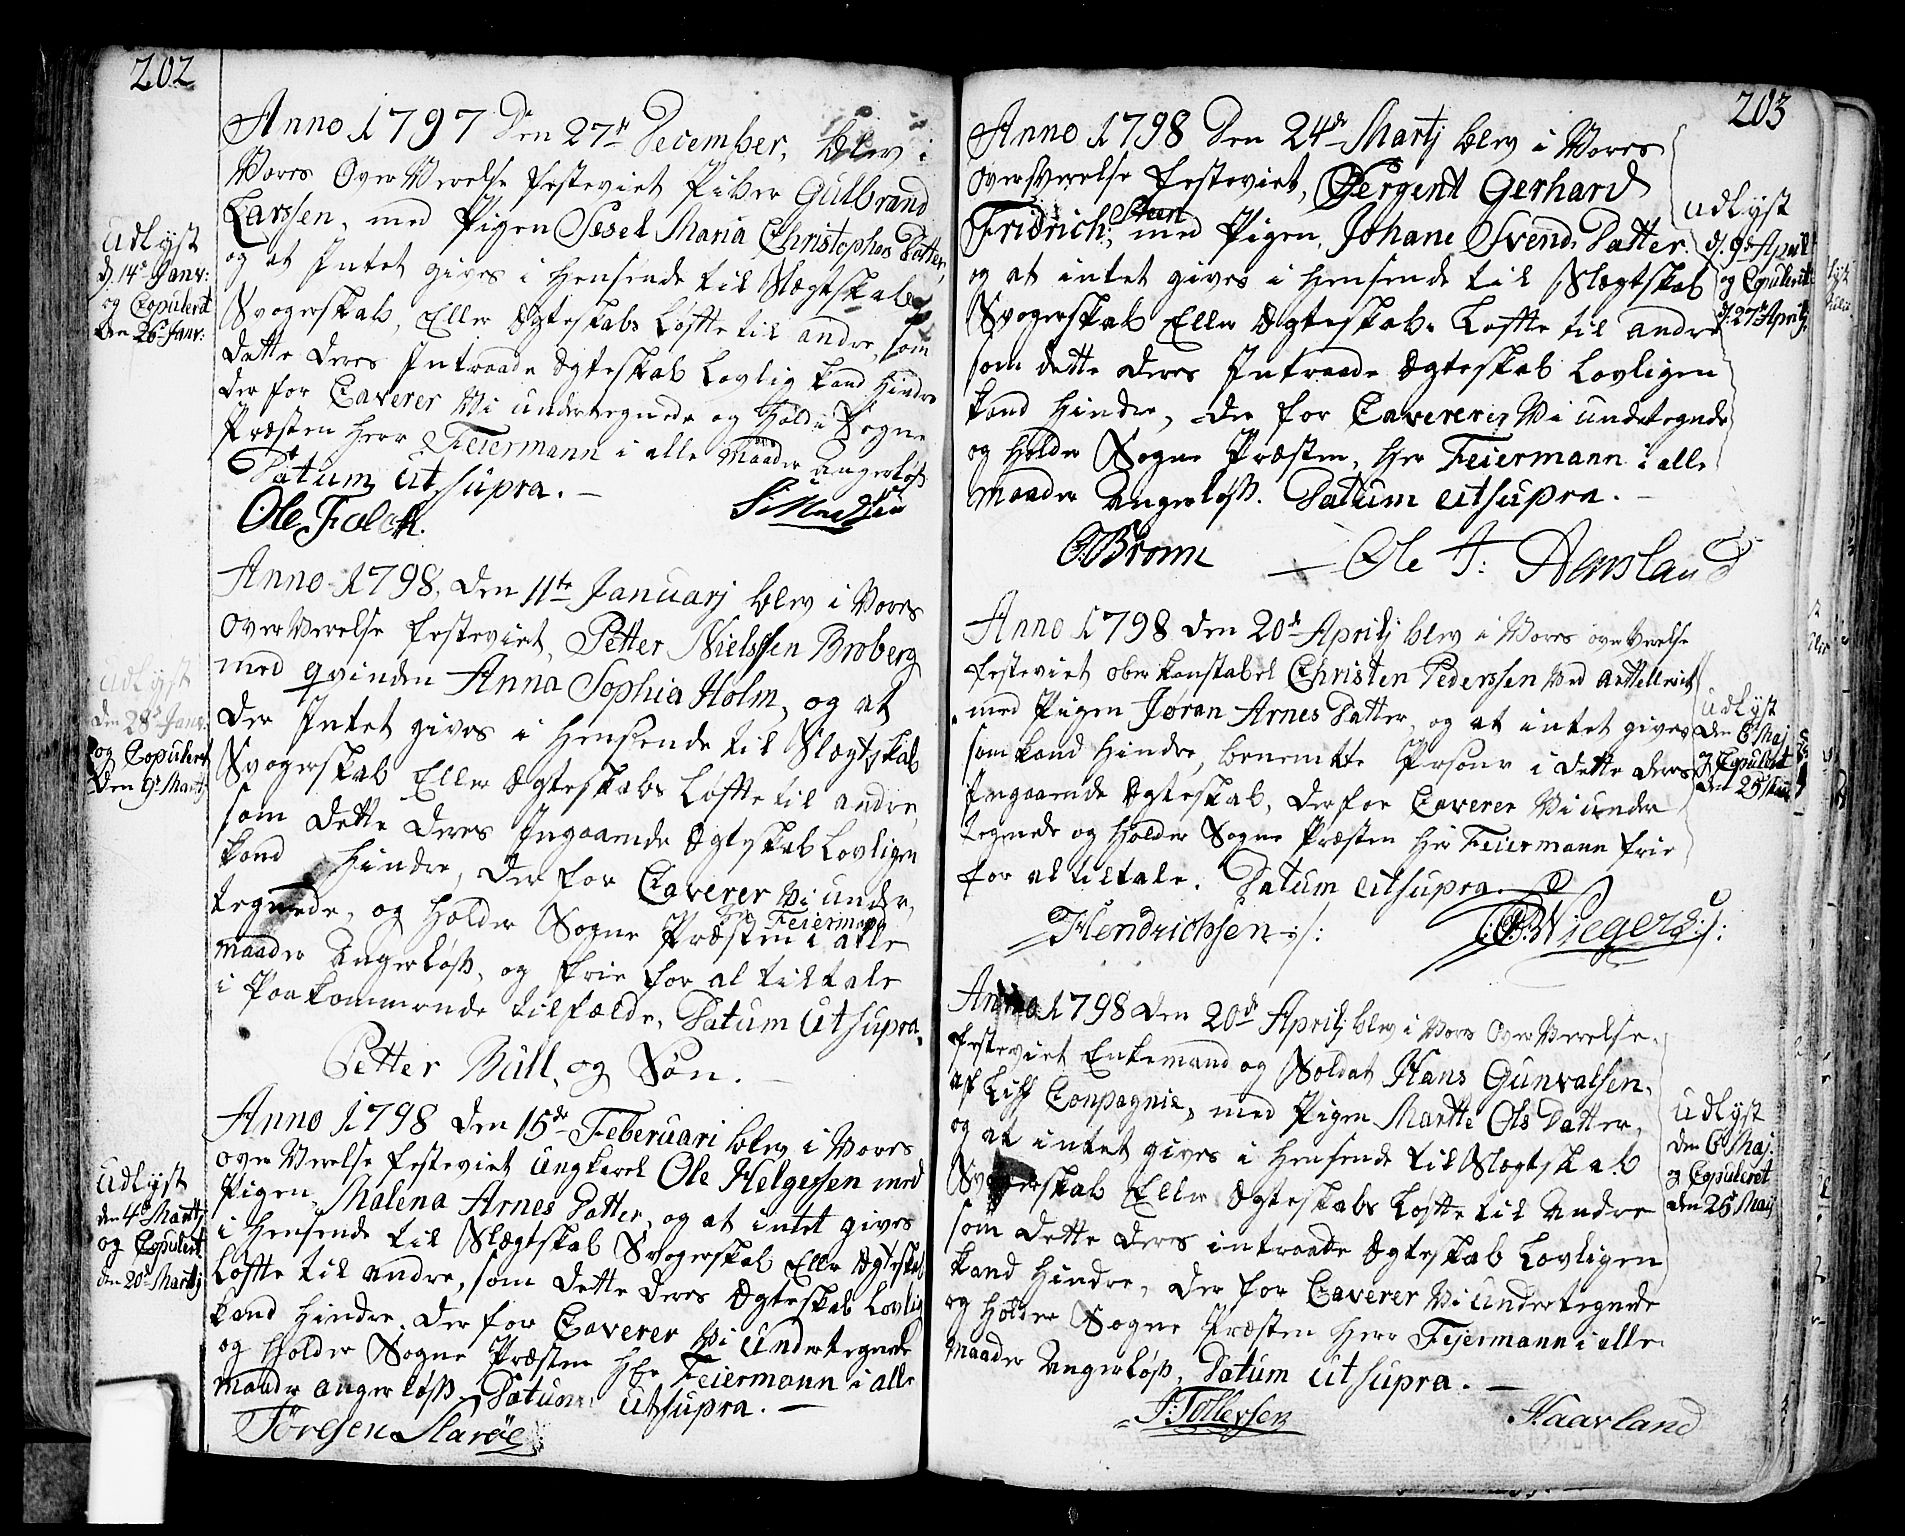 202
Anno 1797 Den 27de December, blev i
Vores Over Verelse festeviet Piber Gulbrand
Larssen, med Pigen Sesel Maria Christophers Datter,
og at Intet gives i Hensende til Slegtskab
Svogerskab, Eller Egteskabs Løfte til andre, som
dette deres Intraade Egteskab Lovlig kand Hindre
der for Caverer Vi undertegnede og Holde Sogne
Præsten Herr Feiermann i alle Maader angerløs
Datum Ut supra. —
Ole Falck.
Udlyst
d. 14de Janv:
og Copulert
den 26 Janv:
Anno 1798, den 11te Januarj blev i Vores
over Verelse festeviet, Petter Nielssen Broberg
med qvinden Anna Sophia Holm, og at
der Intet gives i Hensende til Slegtskab
Svogerskab Eller Egteskabs Løfte til andre,
som dette deres Ingaaende Egteskab Lovligen
kand Hindre, der for Caverer Vi under,
tegnede, og Holder Sogne Præsten Feiermand i alle
Maader Angerløs, og frie for al tiltale
i Paakommende tilfælde, Datum Ut supra.
Petter Bull, og Søn. —
Udlyst
den 28de Janv:
og Copulert
den 9de Martj
Anno 1798 den 15de Februari blev i Vores
over Verelse festeviet Ungkarl Ole Helgessen med
Pigen Malena Arnes Datter, og at intet gives
i Hensende til Slegtskab Svogerskab Eller Egteskab
Løfte til andre, som dette deres Egteskab Lovlig
kand Hindre, der for Caverer Vi Undertegnede
og Holder Sogne Præsten Hr Feiermann i alle
Maader angerløs, Datum Ut supra. —
Udlyst
den 4de Martj
og Copulert
den 20de Martj
203
Anno 1798 Den 24de Martj blev i Vores
Oversverelse festeviet, Sergent Gerhard
Fridrich: Steen med Pigen, Johane Svends Datter.
og at intet gives i Hensende til Slegtskab
Svogerskab Eller Egteskabs Løfte til andre
som dette deres Intraade Egteskab Lovligen
kand Hindre, der for Caverer Vi undetegnde
og Holder Sogne Præsten, Her Feiermann i alle
Maader Angerløs. Datum Ut supra. —
Ole
Udlyst
d. 9de April
og Copulerit
d. 27de Aprilj
Anno 1798 den 20de Aprilj blev i Vores over Verelse
festeviet ober konstabel Christen Pederssen Ved
med Pigen Jøran Arnes Datter, og at intet gives
som kand Hindre, benemte Personer i dette deres
Ingaaende Egteskab, der for Caverer Vi under
tegnede og Holder Sogne Præsten Her Feiermann frie
for al tiltale. Datum Ut supra.
Hendrichsen
Udlyst
den 6te Maj
og Copulert
Anno 1798 den 20de Aprilj blev i Vores Over Verelse.
festeviet Enkemand og Soldat Hans Gunvalsen,
af Liff Compagnie, med Pigen Martte Ols Datter,
og at intet gives i Hensende til Slegtskab
Svogerskab Eller Egteskabs Løfte til Andre
som dette deres intraade Egteskab Lovligen
kand Hindre, der for Caverer Vi Undertegnede
og Holder Sogne Præsten Herr Feiermann i alle
Maader Angerløs, Datum Ut supra. —
J: Tollefsen
Haavland
Udlyst
den 6 Maj
og Copuleret
den 25 Maj